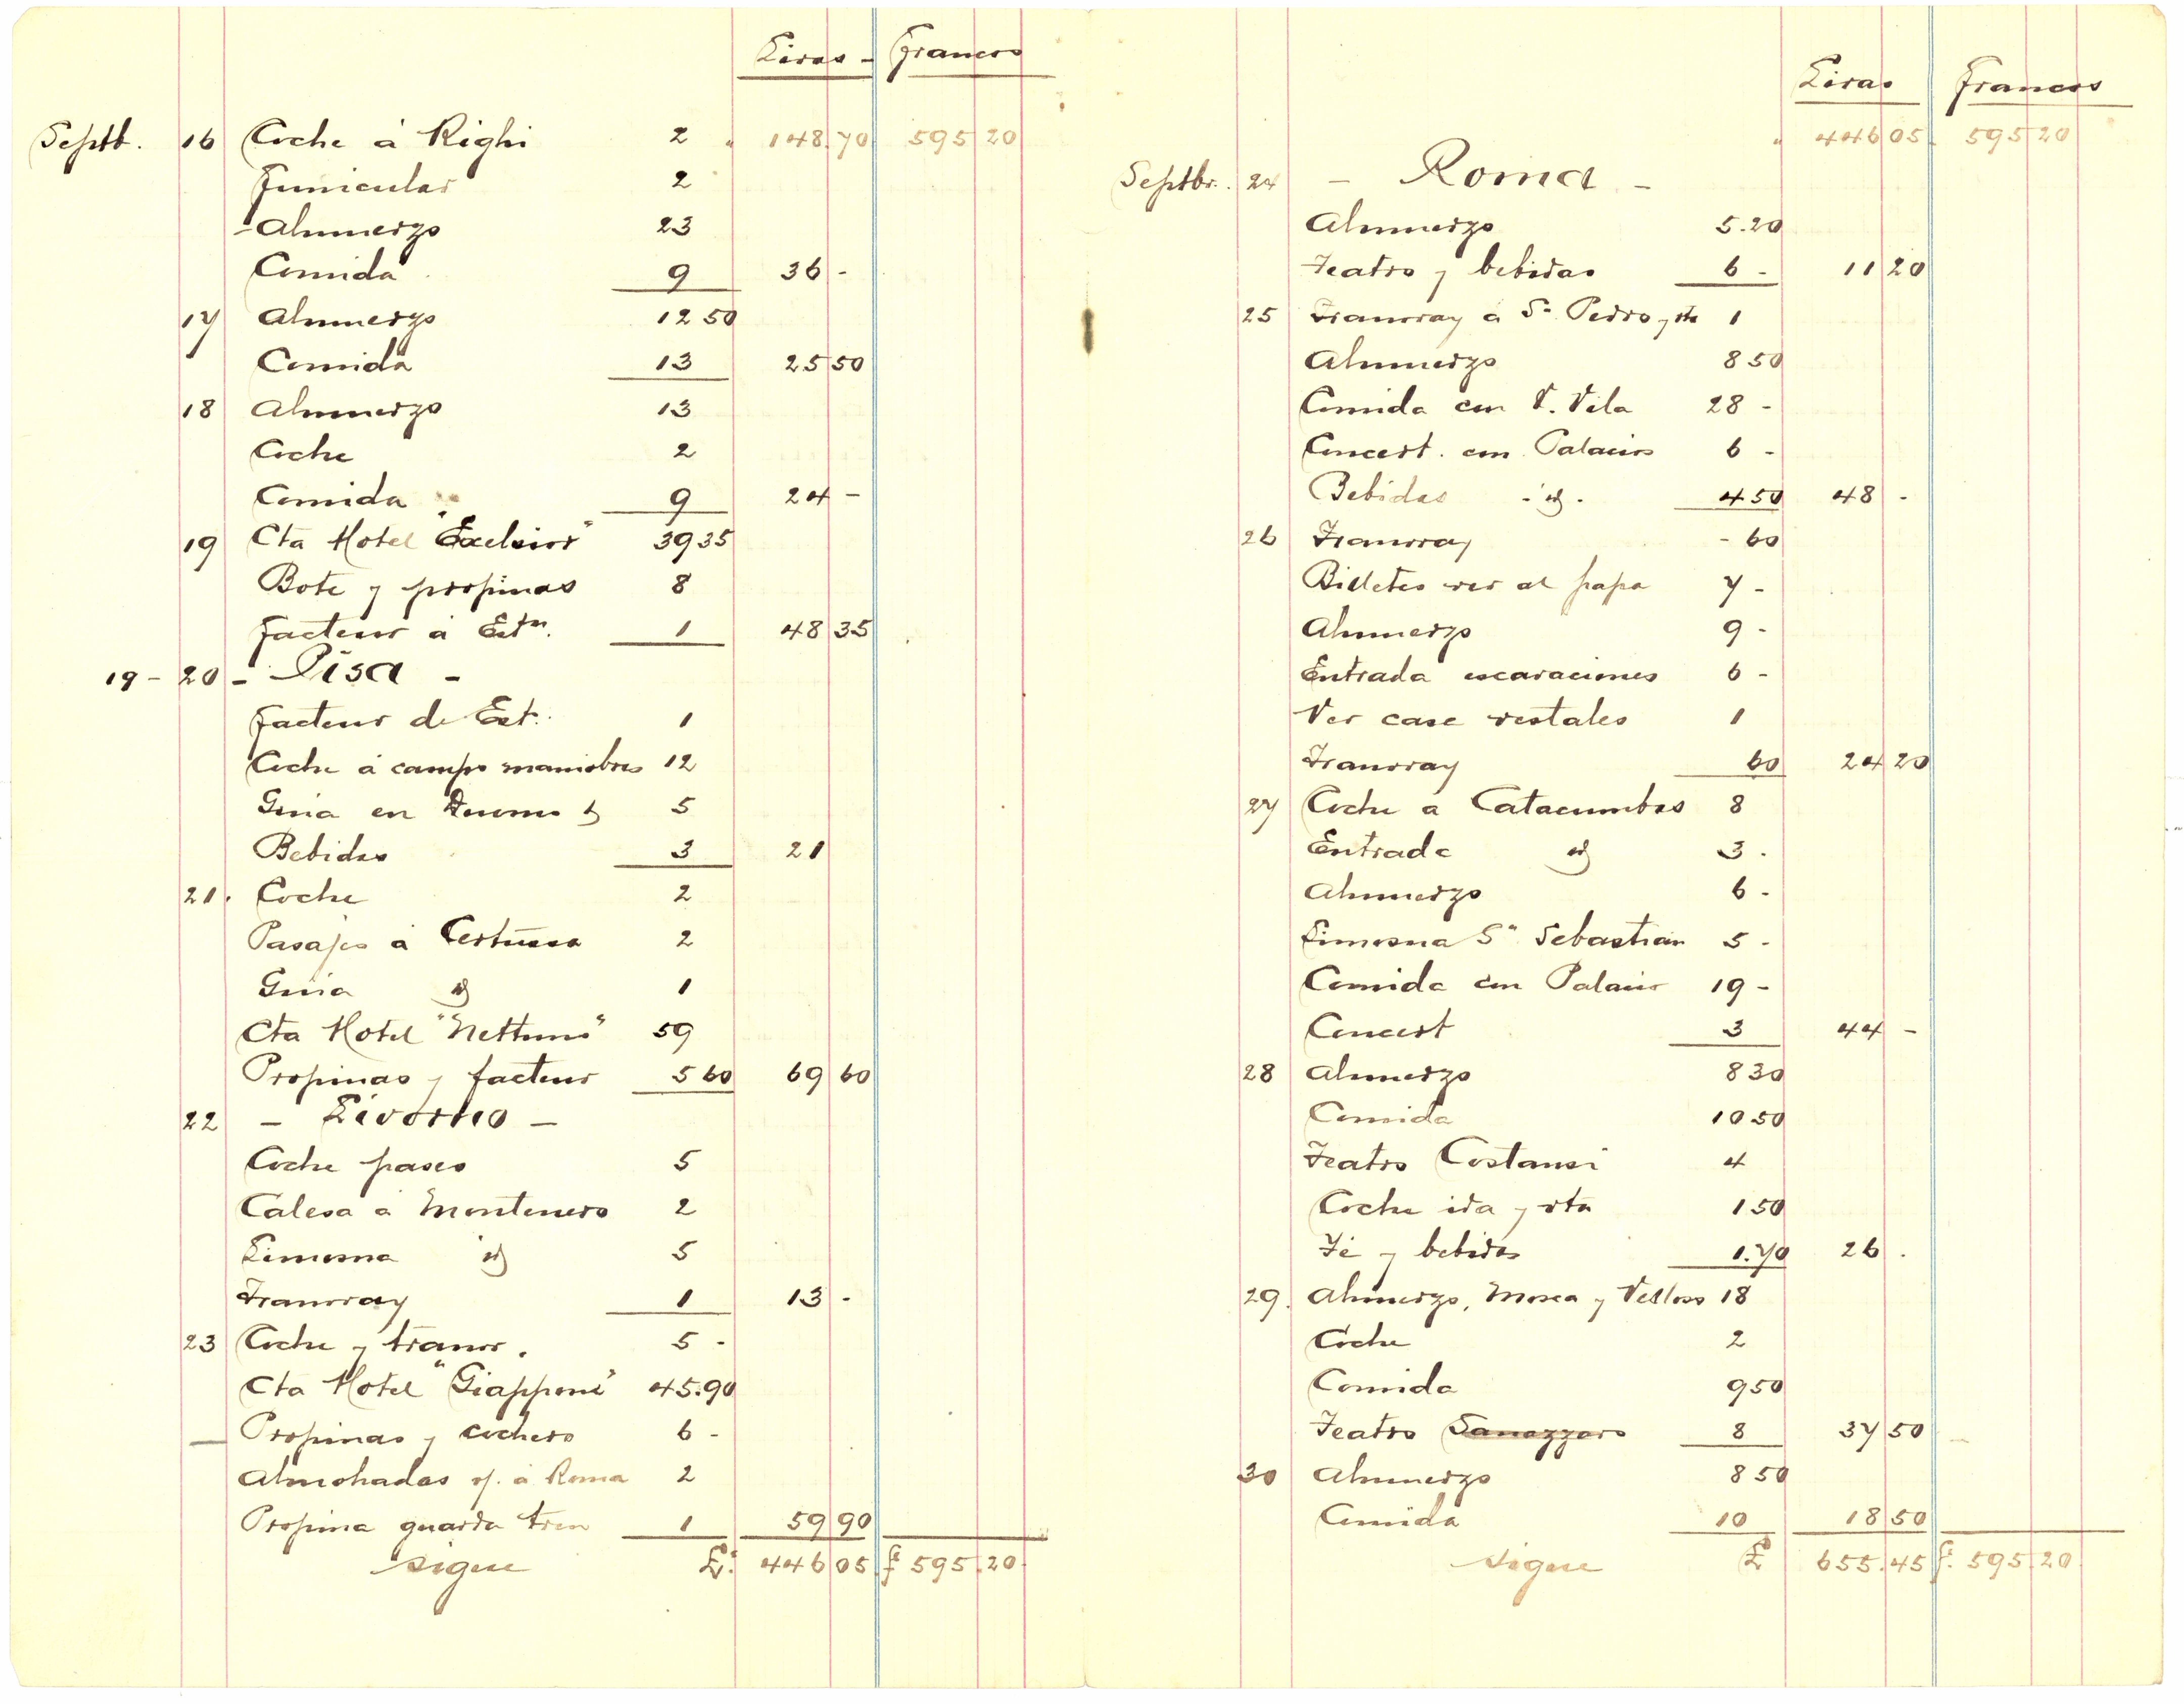 Liras - Francos
Septb. 16 Coche á Righi 2 " 148 70 595 20
Funicular 2
- Almuerzo 23
Comida 9 36 -
17 Almuerzo 12 50
Comida 13 25 50
18 Almuerzo 13
Coche 2
Comida 9 24 -
19 Cta Hotel "Excelsior" 39 35
Bote y propinas 8
facteur á Estn. 1 48 35
19 - 20 - Pisa -
facteur de Est. 1
Coche á campo maniobras 12
Guia en Duomo & 5
Bebidas 3 21
21. Coche 2
Pasajes á Certussa 2
Guia id 1
Cta Hotel "Nettuno" 59
Propinas y facteur 5 60 69 60
22 - Livorno -
Coche paseo 5
Calesa á Montenero 2
Limosna id 5
Tramway 1 13 -
23 Coche y tramw. 5 -
Cta Hotel "Giappone" 45.90
Propinas y cochero 6 -
Almohadas v. á Roma 2
Propina guarda tren 1 59 90
sigue £. 446 05 f. 595.20
Liras Francos
" 446 05 595 20
Septbr. 24 - Roma -
Almuerzo 5.20
Teatro y bebidas 6 - 11 20
25 Tramway á Sn. Pedro y vta 1
Almuerzo 8 50
Comida con V. Vila 28 -
Concert. con Palacios 6 -
Bebidas - id. 4 50 48 -
26 Tramway - 60
Billetes ver al papa 7 -
Almuerzo 9 -
Entrada escavaciones 6 -
Ver case vestales 1
Tramway 60 24 20
27 Coche a Catacumbas 8
Entrada id 3.
Almuerzo 6 -
Limosna Sn Sebastian 5 -
Comida con Palacio 19 -
Concert 3 44 -
28 Almuerzo 8 30
Comida 10 50
Teatro Costansi 4
Coche ida y vta 1 50
Té y bebidas 1.70 26.
29. Almuerzo, Mosca y Velloso 18
Coche 2
Comida 9 50
Teatro Sanazzaro 8 37 50
30 Almuerzo 8 50
Comida 10 18 50
sigue £ 655.45 f. 595.20